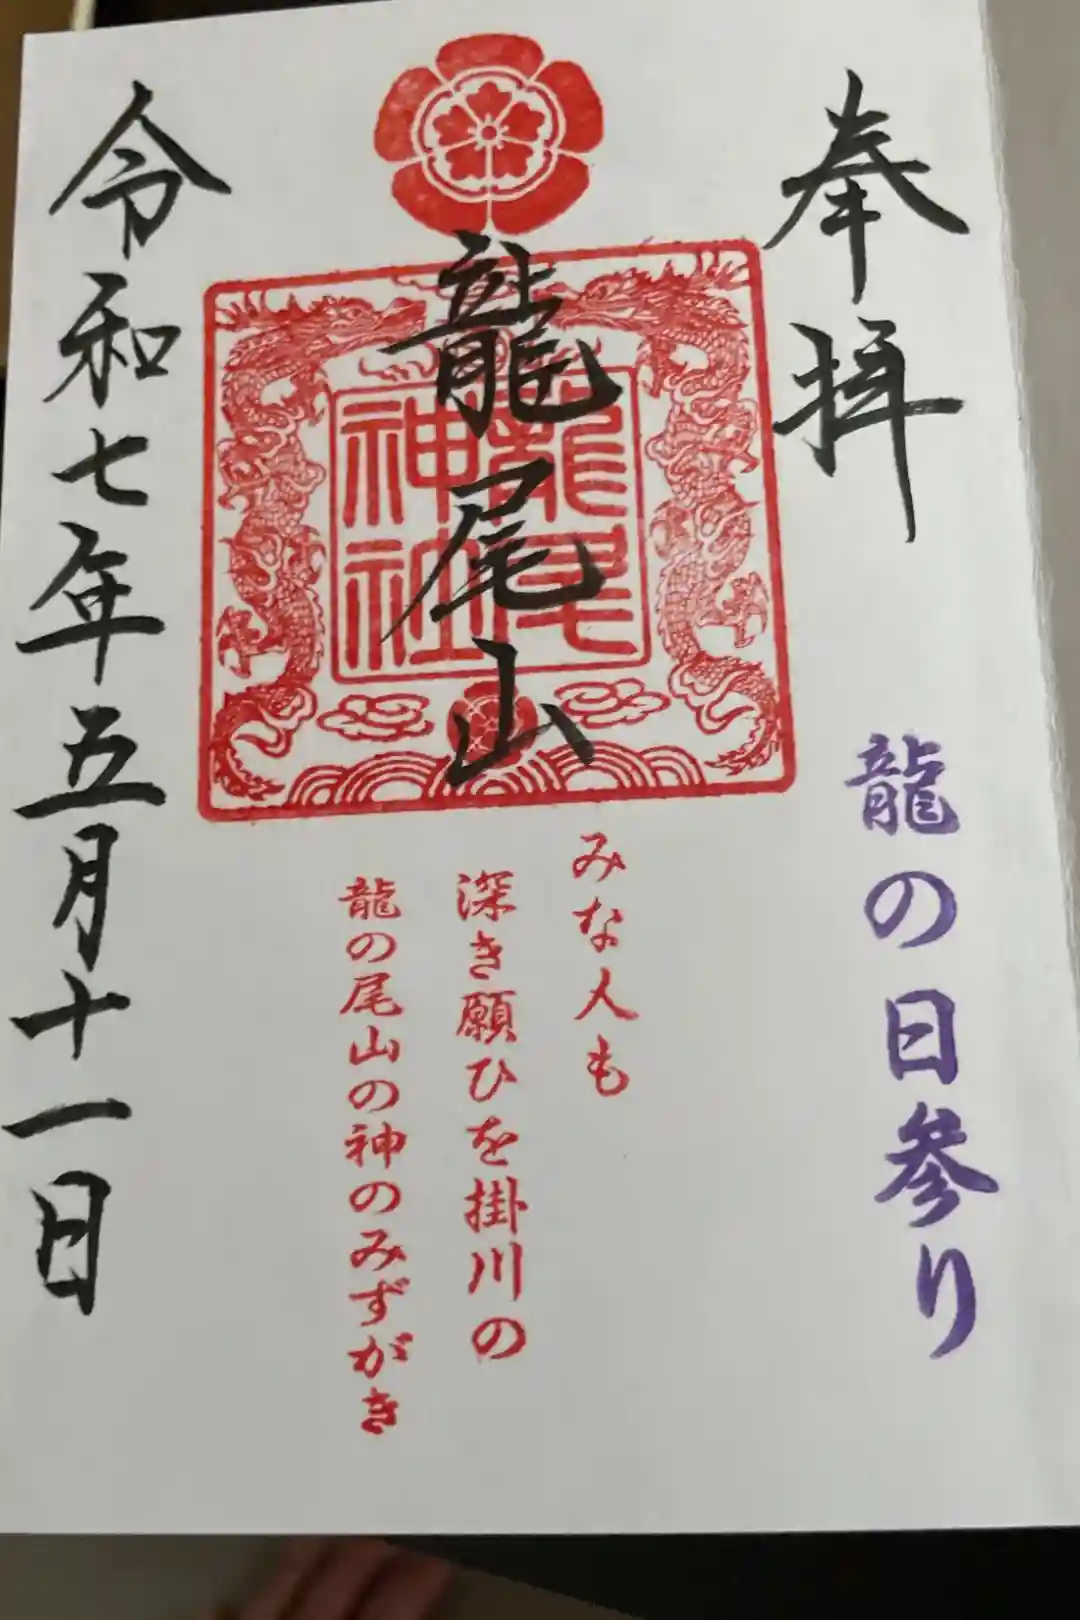 奉拝
龍の日参り
龍尾山
龍尾
神社
みな人も
深き願ひを掛川の
龍の尾山の神のみずがき
令和七年五月十一日